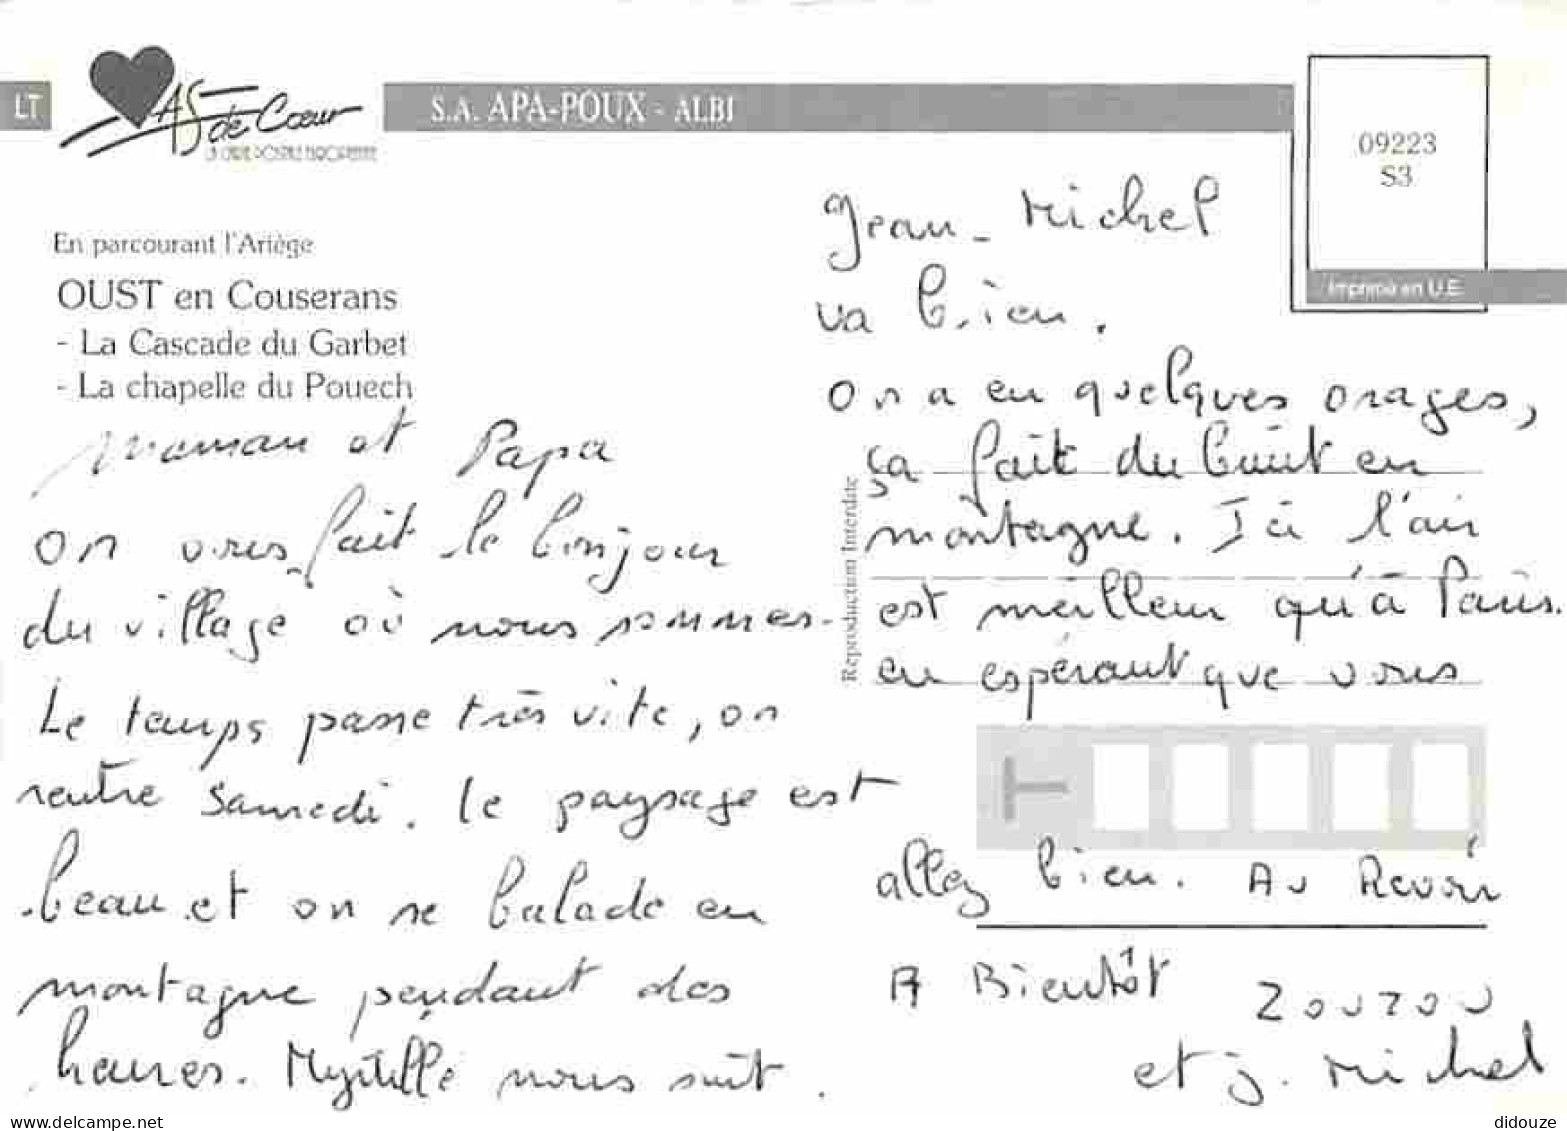 LT
AS de Cœur
LA CARTE POSTALE EUROPEENNE
S.A. APA-POUX - ALBI
09223
S3
Imprimé en U.E.
En parcourant l'Ariège
OUST en Couserans
- La Cascade du Garbet
- La chapelle du Pouech
Maman et Papa
on vous fait le bonjour
du village où nous sommes.
Le temps passe très vite, on
rentre Samedi. le paysage est
beau et on se balade en
montagne pendant des
heures. Myrtille nous suit.
Reproduction Interdite
Jean-Michel
va bien.
on a eu quelques orages,
ça fait du bruit en
montagne. Ici l'air
est meilleur qu'à Paris.
en espérant que vous
allez bien. Au Revoir
A Bientôt Zouzou
et J. Michel
delcampe.net
didouze